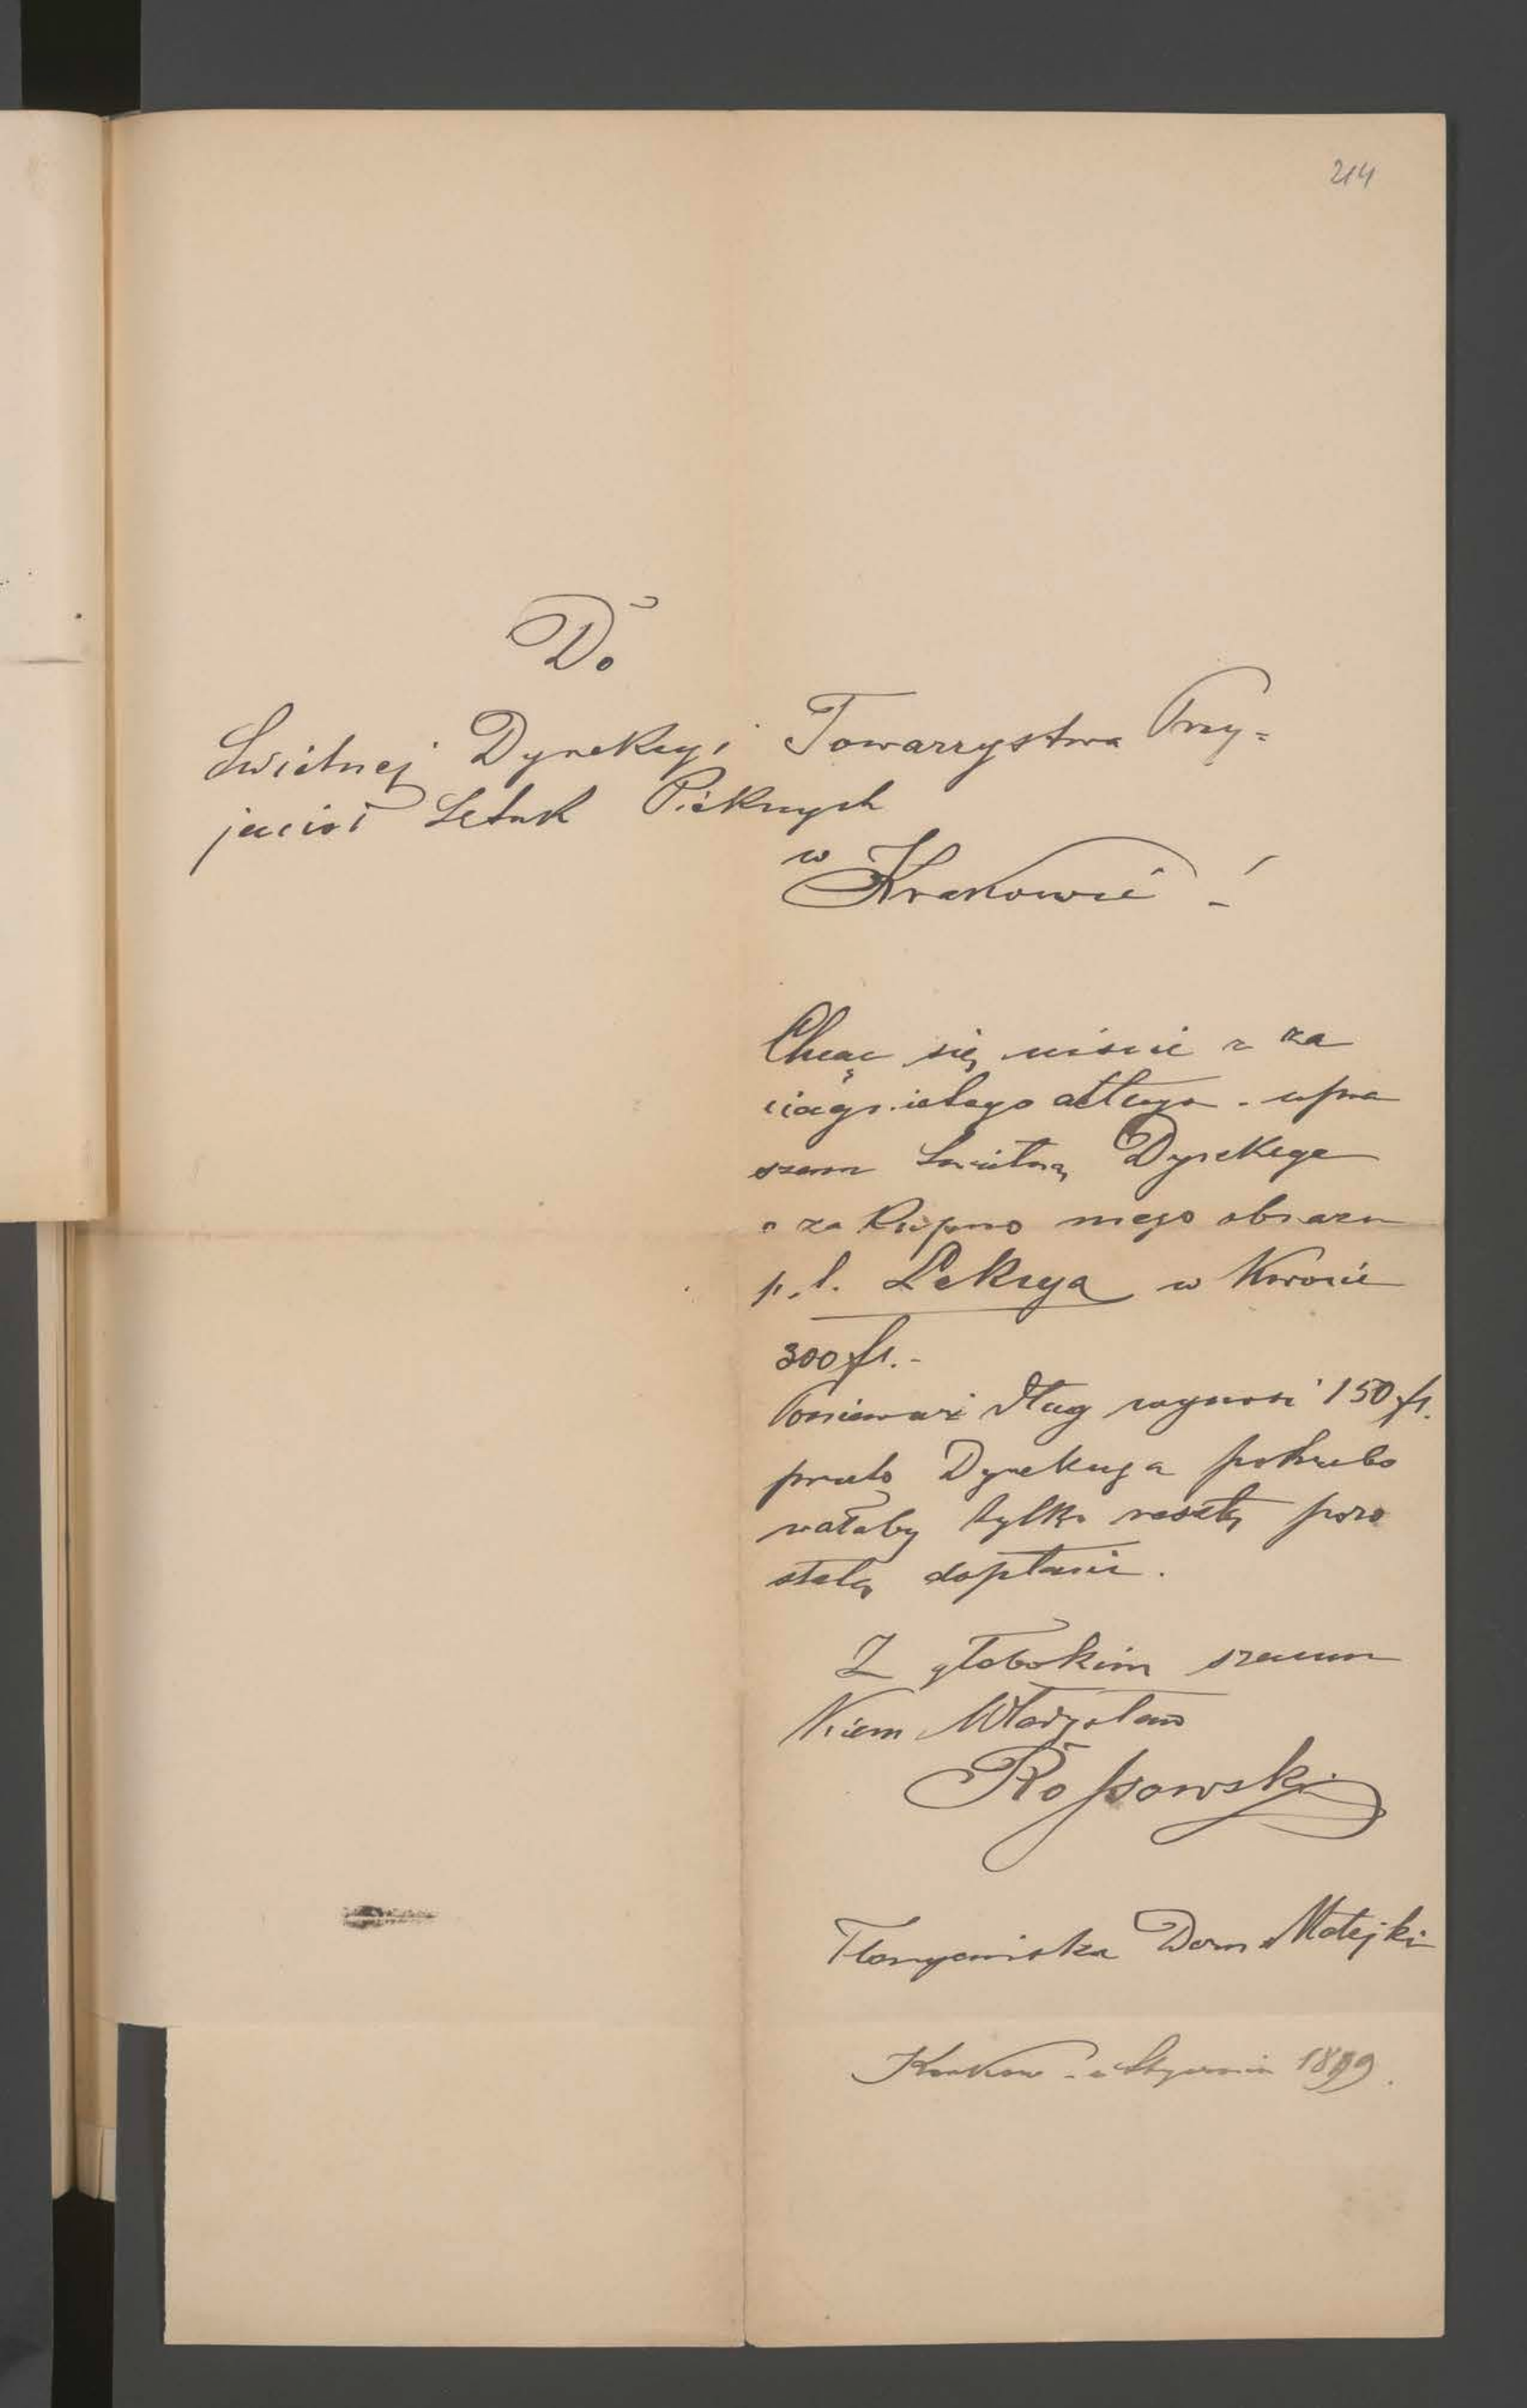 214
Do
Świetnej Dyrekcyi Towarzystwa Przy=
jaciół Sztuk Pięknych
w
Krakowie!
Chcąc się uiścić z za
ciągniętego długu - upra
szam Świetną Dyrekcye
o zakupno mego obrazu
p.t. Lekcya w kwocie
300 fl.-
Ponieważ dług wynosi 150 fl.
przeto Dyrekcya potrzebo
wałaby tylko resztę pozo
stałą dopłacić.
Z głębokim szacun
kiem Władysław
Rossowski
Floryańska Dom Matejki
Krakow - Stycznia 1899.